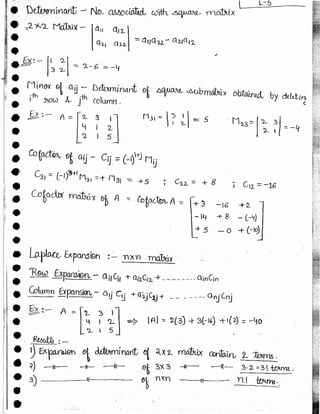 L-5
Determinant - No. associated with square matrix
2x2 Matrix - | a11 a12 | = a11 a22 - a21 a12
| a21 a22 |
Ex:- | 1 2 | = 2-6 = -4
| 3 2 |
Minor of aij - Determinant of square submatrix obtained by deleting
ith row & jth column.
Ex:- A = [ 2 3 1 ] M31 = | 3 1 | = 5 . M23 = | 2 3 | = -4
[ 4 1 2 ] | 1 2 | | 2 1 |
[ 2 1 5 ]
Cofactor of aij - Cij = (-1)^i+j Mij
C31 = (-1)^3+1 M31 = + M31 = +5 ; C22 = +8 ; C12 = -16
Cofactor matrix of A = Cofactor A = [ +3 -16 +2 ]
[ -14 +8 -(-4) ]
[ +5 -0 +(-10) ]
Laplace Expansion :- nxn matrix
Row Expansion - ai1 Ci1 + ai2 Ci2 + ------- ain Cin
Column Expansion - a1j C1j + a2j C2j + ------- anj Cnj
Ex:- A = [ 2 3 1 ] => |A| = 2(3) + 3(-16) + 1(2) = -40
[ 4 1 2 ]
[ 2 1 5 ]
Results:-
1) Expansion of determinant of 2x2 matrix contain 2 terms.
2) -"- -"- -"- of 3x3 -"- -"- 3·2 = 3! terms.
3) -"- of nxn -"- n! terms.